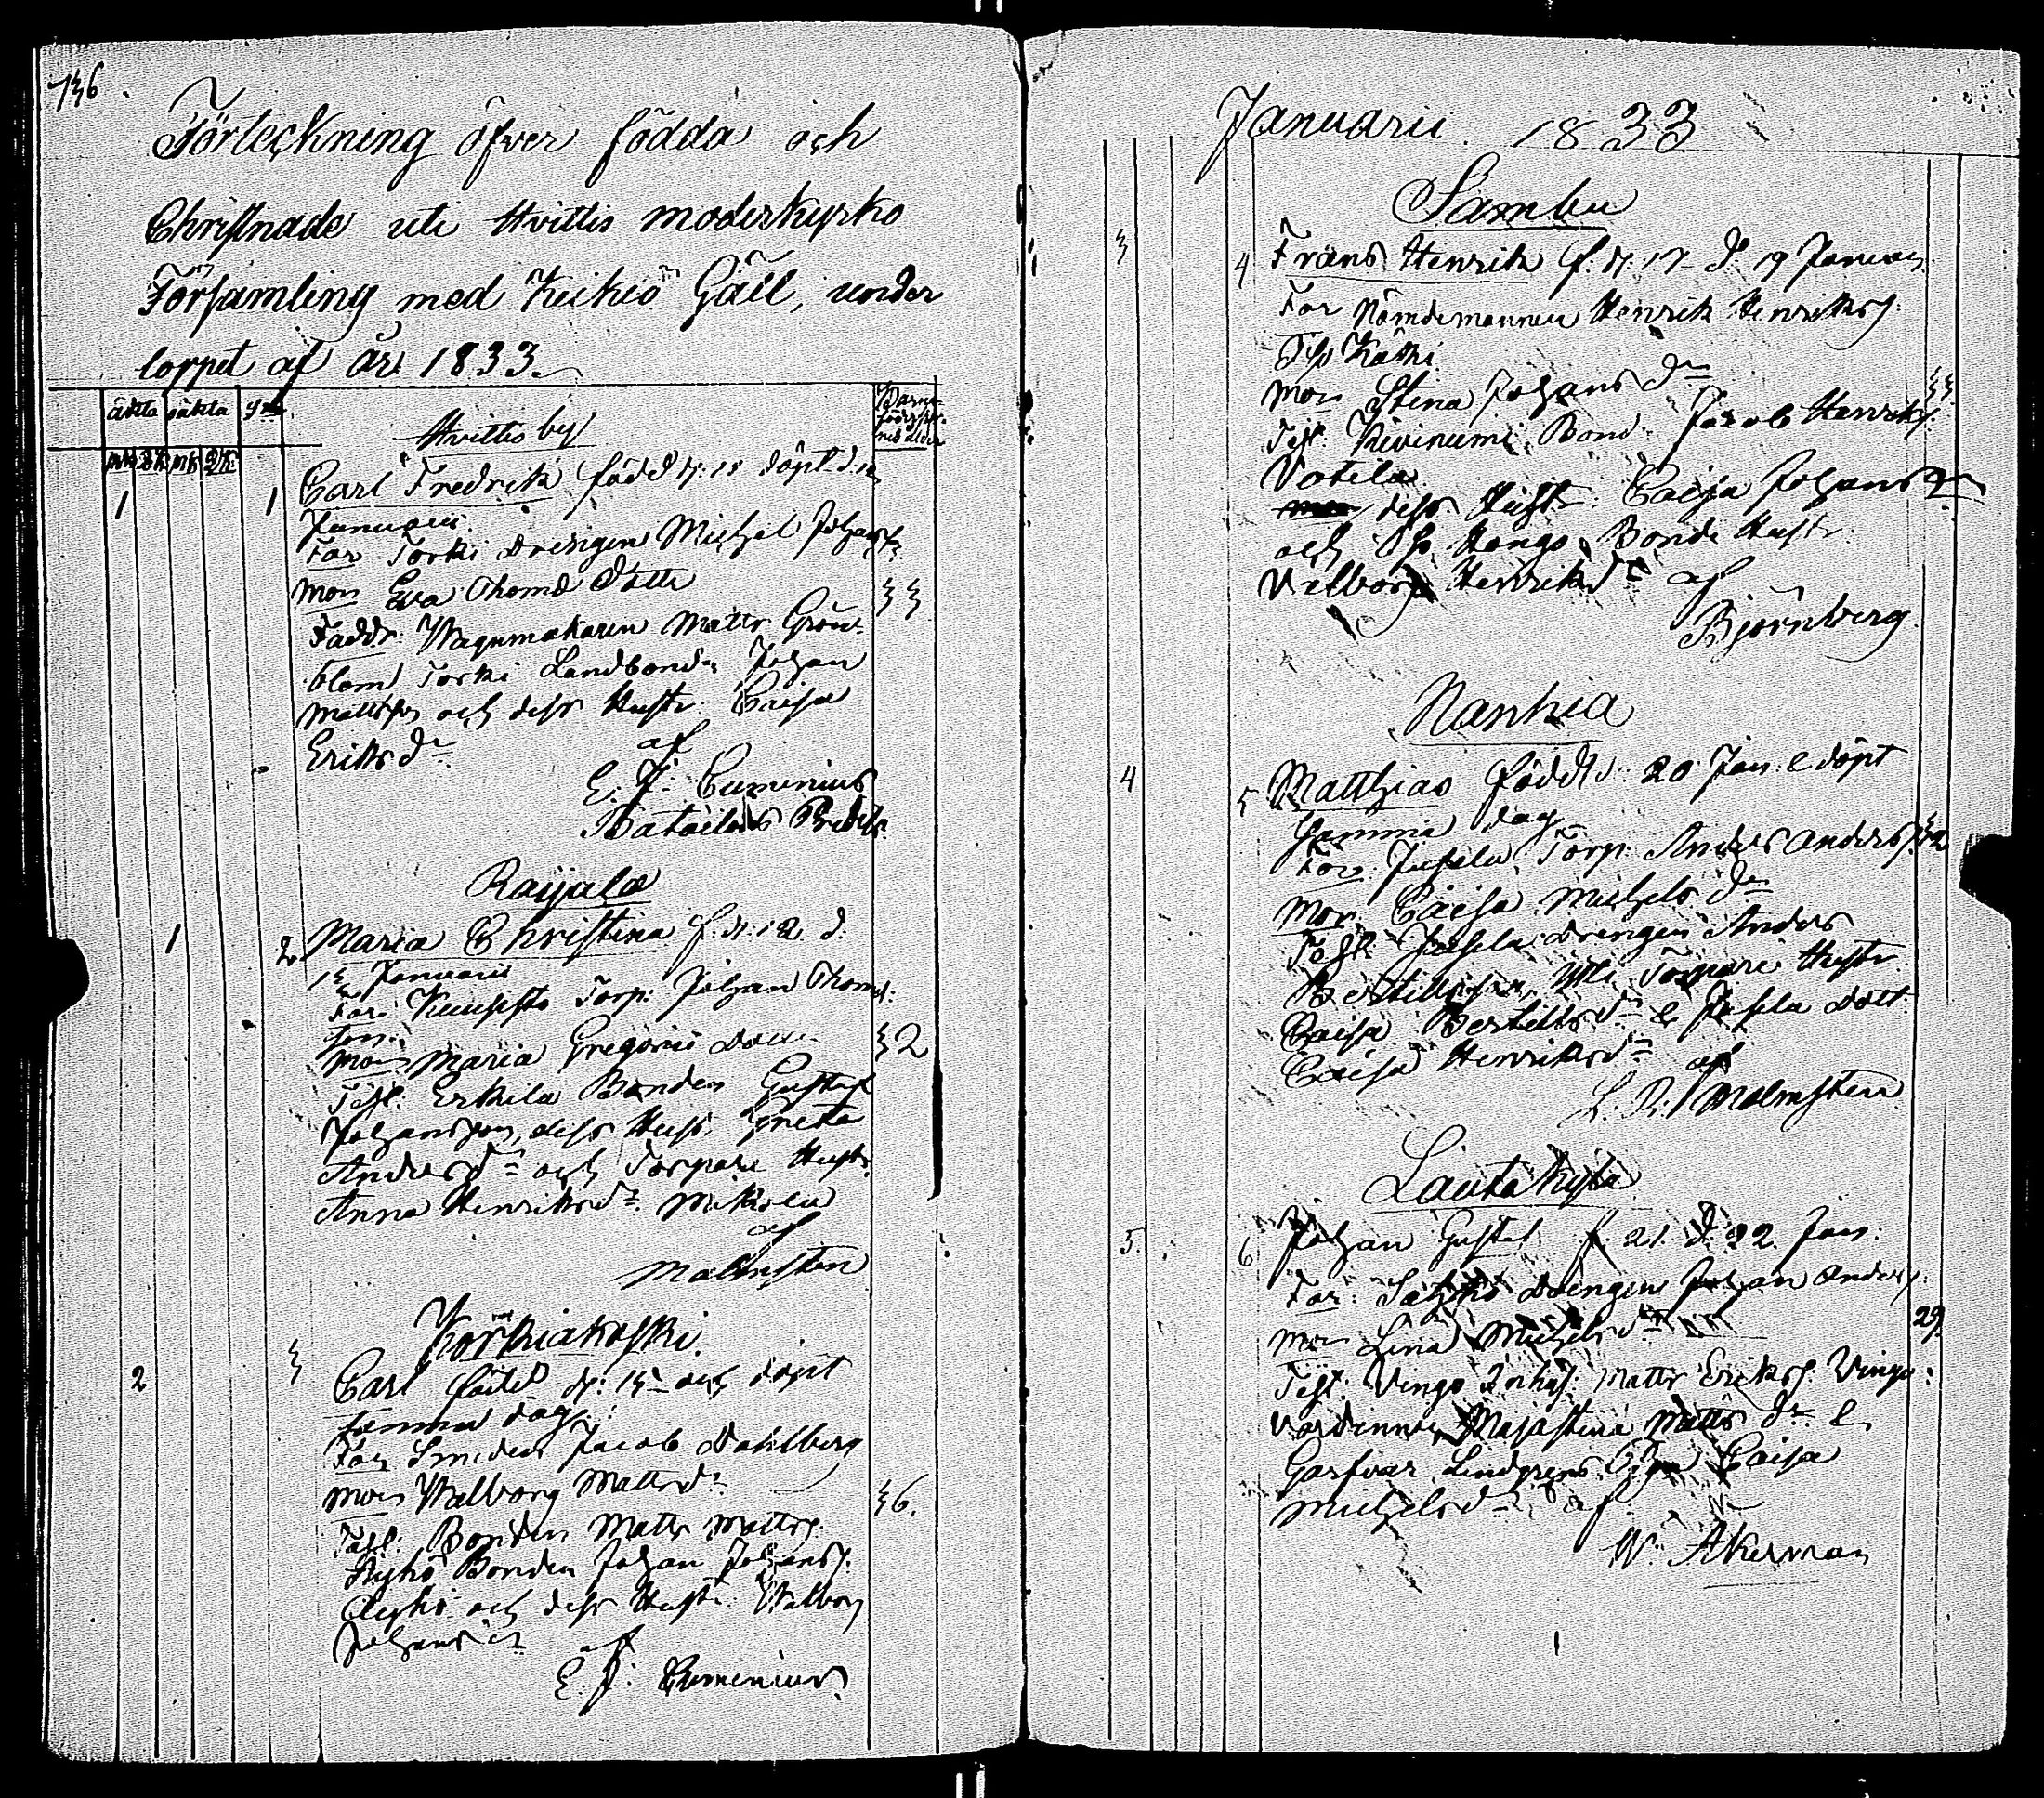 136
Förteckning öfver födda och
Christnade uti Hvittis moderkyrko
Församling med Keikiö Gäll, under
loppet af år 1833.
äkta oäkta
Hvittis by
1 1 Carl Fredrik född d:
Januarii.
Far Torki Drengen Michel Johans:
Mor Eva Thoms Dotter
Faddr: Wagnmakaren Matts Grön-
blom Torki Landbonden Johan
Mattsson och dess Hustr: Caisa
Eriksdr 33
af
E. J. Cumenius
Bataillons Predik:
Raijala
1 2 Maria Christina f. d. 12 d.
13 Januarii
Far Torp: Johan Thoms-
son.
Mor Maria Gregorii Dotter 32
Test: Erkila Bonden Gustaf
Johansson, dess Hust: Greta
Andersdr och Torpare Hustr:
Anna Henriksdr.
af
Malmsten
Korkiakoski.
2 3 Carl född d: 15 och döpt
samma dag
Far Smeden Jacob Dahlberg
Mor Walborg Mattsdr 36.
Test: Bonden Matts Mattss:
Bonden Johan Johanss:
och dess Hustr: Walborg
Johansdr
af
E. J. Cumenius.
Januarii 1833
Sambu
3 4 Frans Henrik f. d. 17 d. 19 Januarii
Far Nämdemannen Henrik Henrikss:
Käthi
Mor Stina Johans dr 33
Test: Kiviniemi Bond: Jacob Henrikss:
dess Hustr: Caisa Johans dr
och Hongo Bonde Hustr:
Valborg Henriksdr af
Björnberg.
Nanhia
4 5 Matthias född d: 20 Jan. & döpt
samma dag
Far: Torp: Anders Anderss: 32
Mor: Caisa Michels dr
Test: Drengen Anders
Torpare Hustr:
Caisa Bertilsdr & dott:
Caisa Henriksdr af
Malmsten
Lautakylä
5. 6 Johan Gustaf f. 21. d. 22. Jan.
Far: Drengen Johan Anderss:
Mor Lena Michelsdr 29.
Test: Vingo Inhys: Matts Erikss: Vingo
Värdinnan Majastina Matts dr &
Garfvar Lindgrens Caisa
Michelsdr af
W: Åkerman